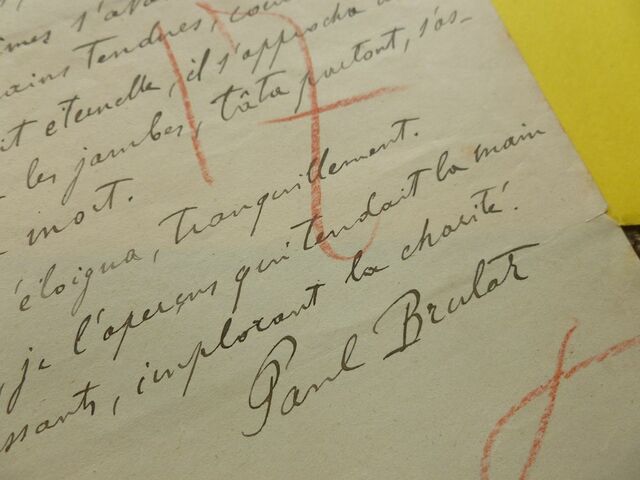 imes s'ava
ains tendues, cou
it éternelle, il s'approcha
les jambes, tâta partout, s'as-
mort.
éloigna, tranquillement.
, je l'aperçus qui tendait la main
ssants, implorant la charité.
Paul Brulat